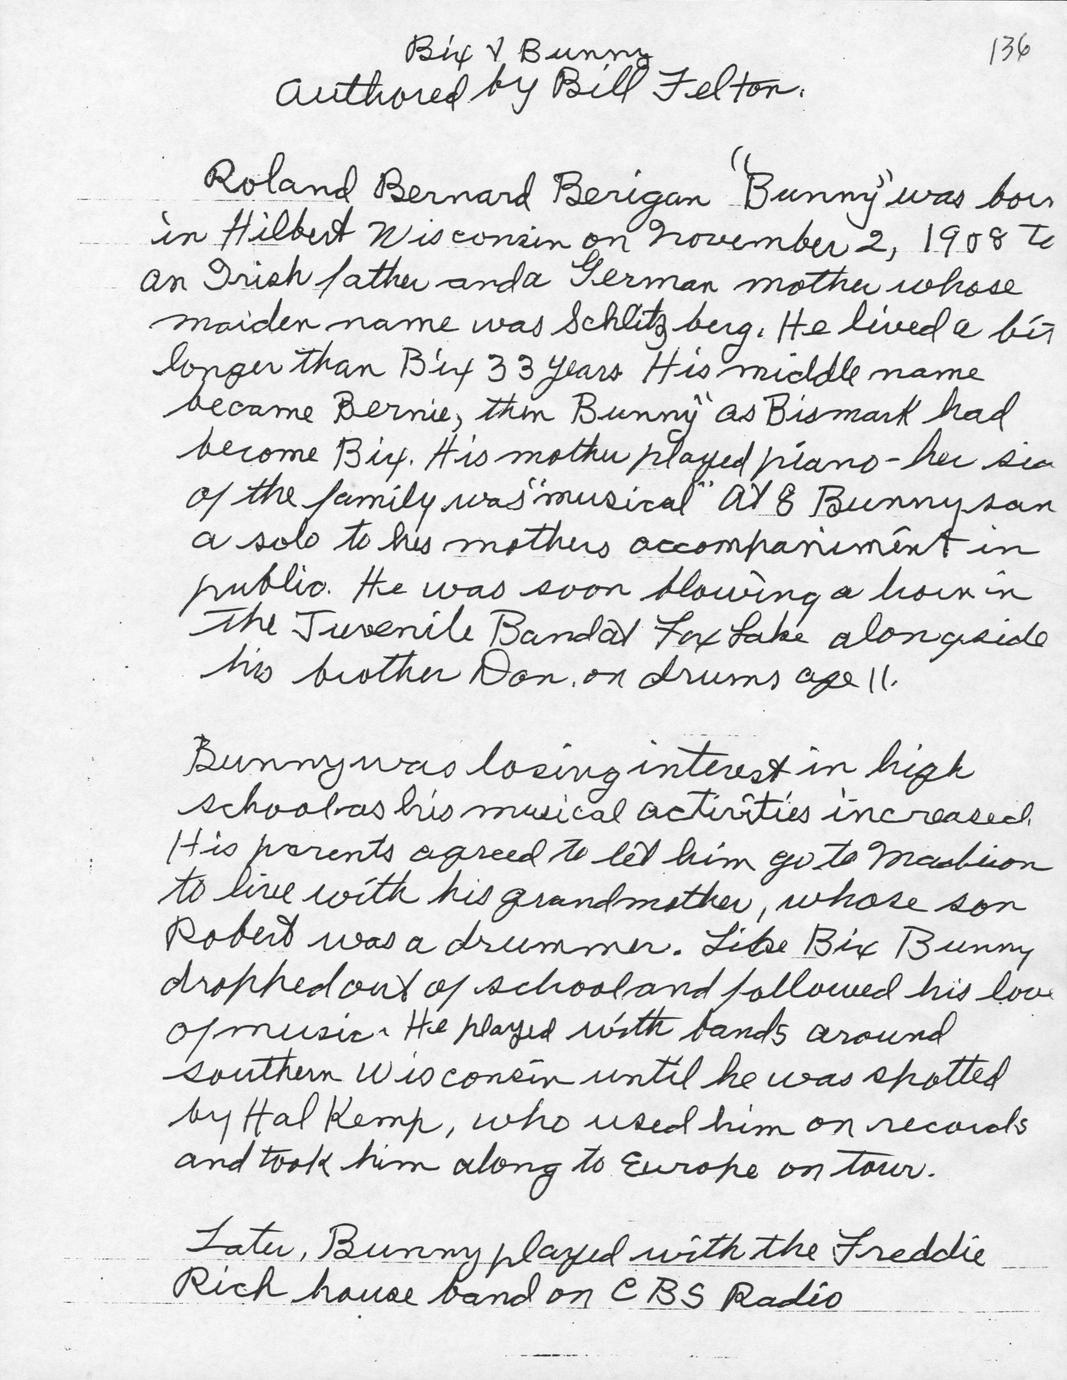 136
Bix & Bunny
Authored by Bill Felton.
Roland Bernard Berigan "Bunny" was bor
in Hilbert Wisconsin on November 2, 1908 to
an Irish father and a German mother whose
maiden name was Schlitzberg. He lived a bit
longer than Bix 33 years His middle name
became Bernie, then Bunny" as Bismark had
become Bix. His mother played piano - her sid
of the family was "musical" At 8 Bunny san
a solo to his mothers accompaniment in
public. He was soon blowing a horn in
the Juvenile Band at Fox Lake alongside
his brother Don, on drums age 11.
Bunny was losing interest in high
school as his musical activities increased.
His parents agreed to let him go to Madison
to live with his grandmother, whose son
Robert was a drummer. Like Bix Bunny
dropped out of school and followed his love
of music. He played with bands around
southern Wisconsin until he was spotted
by Hal Kemp, who used him on records
and took him along to Europe on tour.
Later, Bunny played with the Freddie
Rich house band on CBS Radio